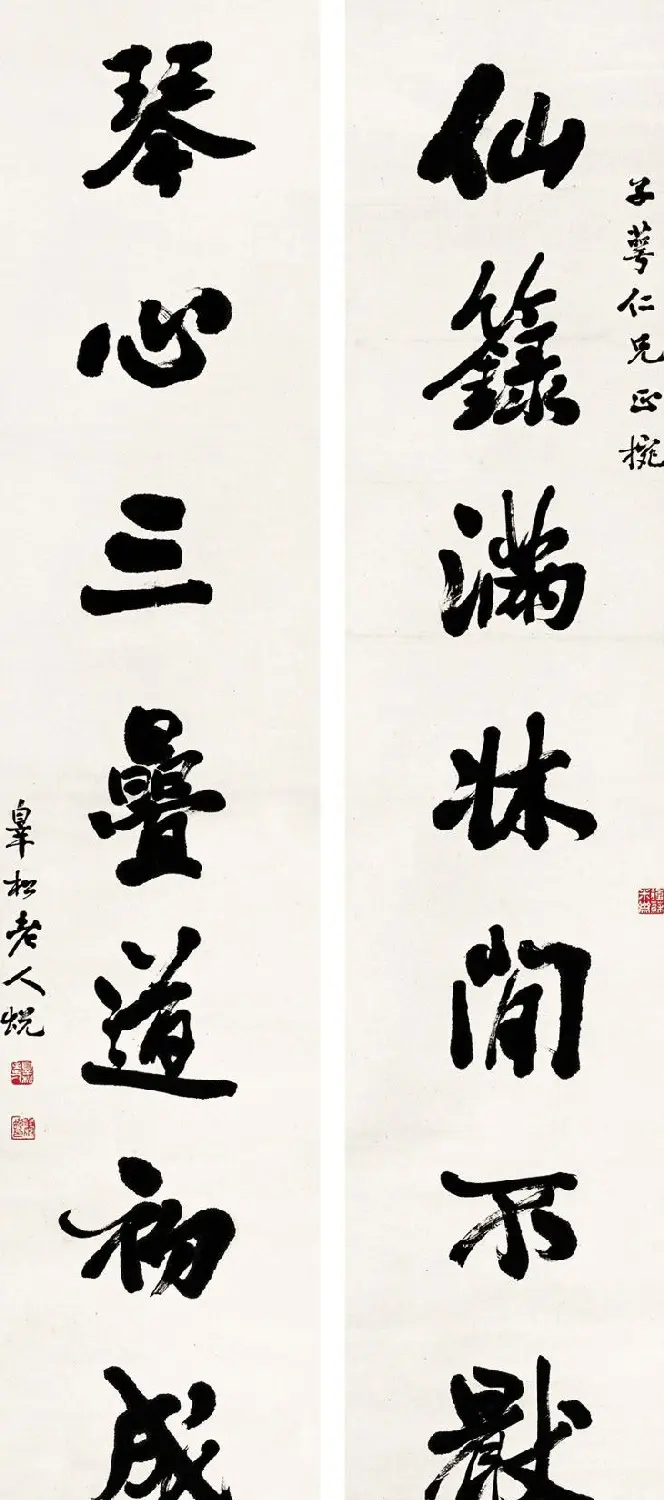 子萼仁兄正椀
仙籙滿牀閒不猒
琴心三疊道初成
皋松老人